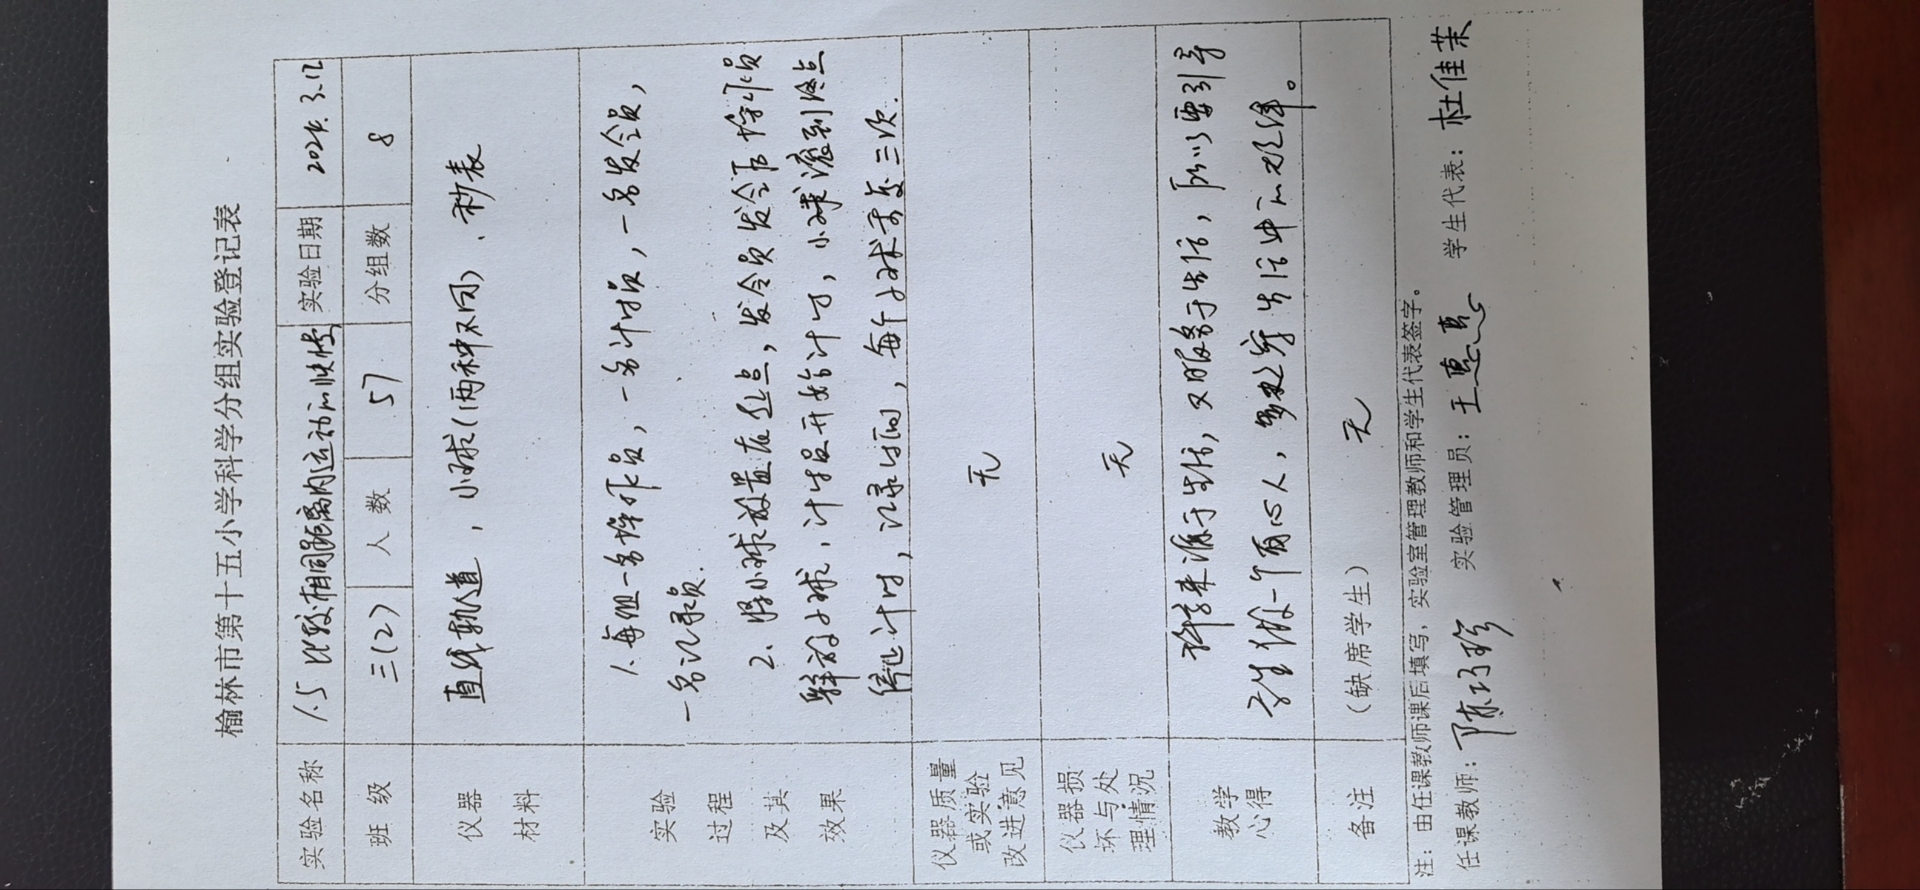 榆林市第十五小学科学分组实验登记表
实验名称 1.5 比较相同距离内运动的快慢 实验日期 2024.3.12
班 级 三(2) 人 数 57 分组数 8
仪器 材料 直线轨道，小球(两种不同)、秒表
实验 过程 及其 效果
1.每组一名操作员，一名计时员，一名发令员，
一名记录员.
2.将小球放置在起点，发令员发令后操作员
释放小球，计时员开始计时，小球滚到终点
停止计时，记录时间，每个小球重复三次.
仪器质量 或实验 改进意见 无
仪器损 坏与处 理情况 无
教学 心得
科学来源于生活，又服务于生活，所以要引导
学生做一个有心人，生活中的规律。
备注 (缺席学生) 无
注：由任课教师课后填写，实验室管理教师和学生代表签字。
任课教师：陈巧珍 实验管理员：王惠 学生代表：杜佳茉